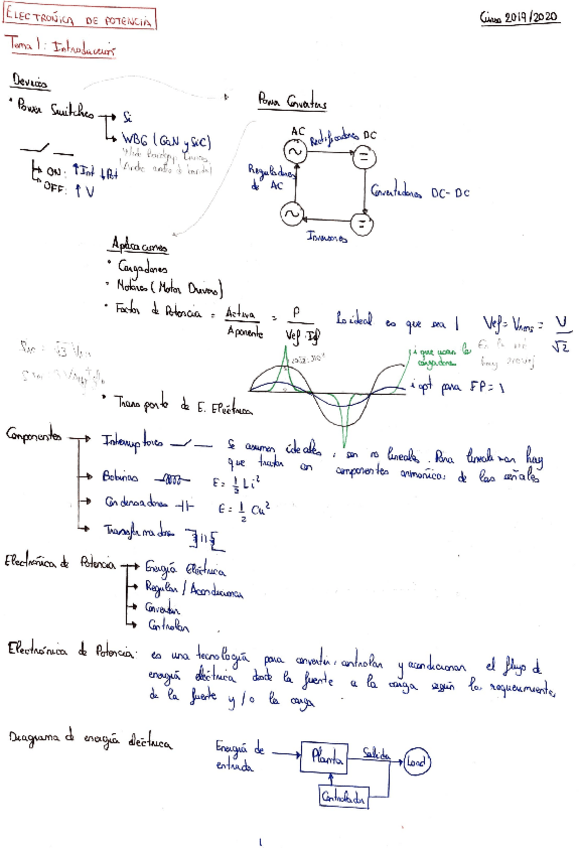 ELECTRÓNICA DE POTENCIA
Curso 2019/2020
Tema 1: Introducción
Devices
• Power Switches → Si
→ WBG (GaN y SiC)
ON: ↑Int ↓Pot
OFF: ↑V
Power Converters
AC
Rectificadores
DC
=
Reguladores de AC
Convertidores DC-DC
Inversores
=
Aplicaciones
• Cargadores
• Motores (Motor Drivers)
• Factor de Potencia = Activa / Aparente = P / Vef · Ief
Lo ideal es que sea 1
Vef = Vrms = V / √2
i que usan los cargadores
i opt para FP = 1
• Transporte de E. Eléctrica
Componentes → Interruptores
Se asumen ideales, son no lineales. Para
que tratar en componentes armónicas de las señales
→ Bobinas E = ½ Li²
→ Condensadores E = ½ Cu²
→ Transformadores
Electrónica de Potencia → Energía Eléctrica
→ Regular / Acondicionar
→ Convertir
→ Controlar
Electrónica de Potencia: es una tecnología para convertir, controlar y acondicionar el flujo de
energía eléctrica desde la fuente a la carga según los requerimientos
de la fuente y/o la carga
Diagrama de energía eléctrica
Energía de entrada
Planta
Salida
Load
Controlador
1